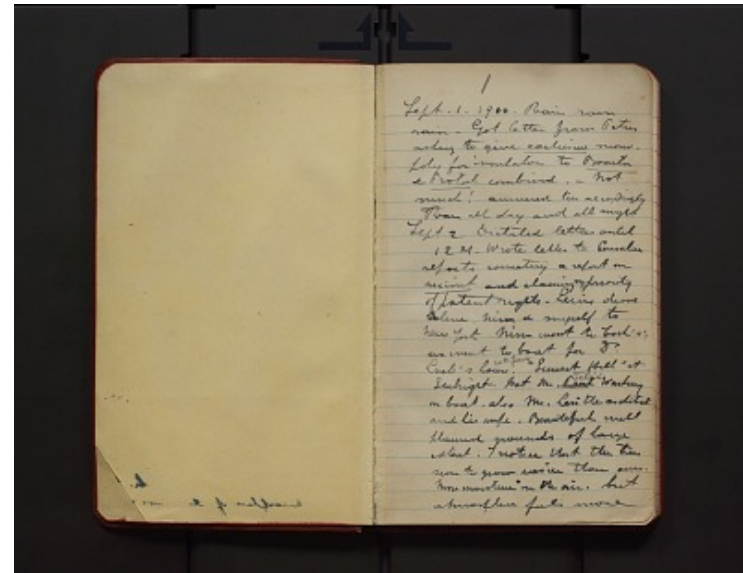 1
Sept. 1. 1900. Rain rain
rain - Got letter from Peters
asking to give exclusive mono-
poly for insulators to Procter
& combined. - Not
much! answered too accordingly
Rain all day and all night
Sept 2 Dictated letters until
12 M. Wrote letter to Consular
reports correcting a report on
and claiming priority
of patent rights.
Celine Nina & myself to
New York Nina went to
we went to boat for
house "Sunset Hill" at
Seabright. Met Mr.
on boat. also Mr. the architect
and his wife. Beautiful well
planned grounds of large
extent. I notice that the trees
seem to grow easier than ours.
More moisture in the air. but
atmosphere feels more